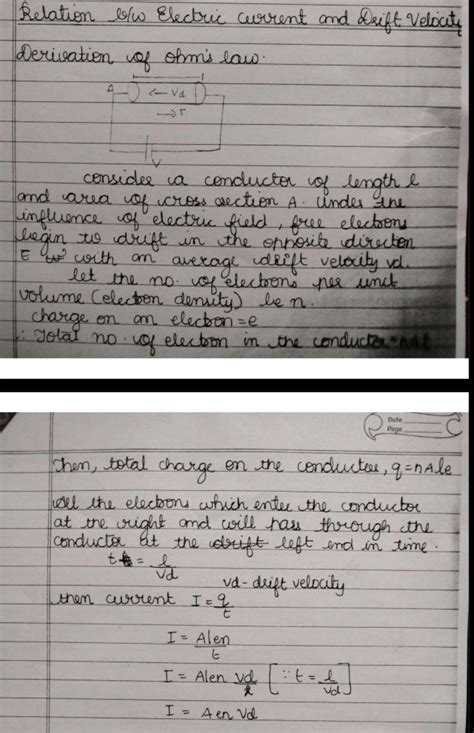 Relation b/w Electric current and Drift Velocity
Derivation of ohm's law.
A
← Vd
→ I
V
consider a conductor of length l
and area of cross section A. Under the
influence of electric field, free electrons
begin to drift in the opposite direction
E with an average drift velocity vd.
let the no. of electrons per unit
volume (electron density) be n.
charge on an electron = e
∴ Total no. of electron in the conductor = nAl
Date
Page
Then, total charge on the conductor, q = nAle
All the electrons which enter the conductor
at the right and will pass through the
conductor at the drift left end in time.
t = l/vd
vd - drift velocity
then current I = q/t
I = Alen/t
I = Alen vd/l [∵ t = l/vd]
I = Aen Vd